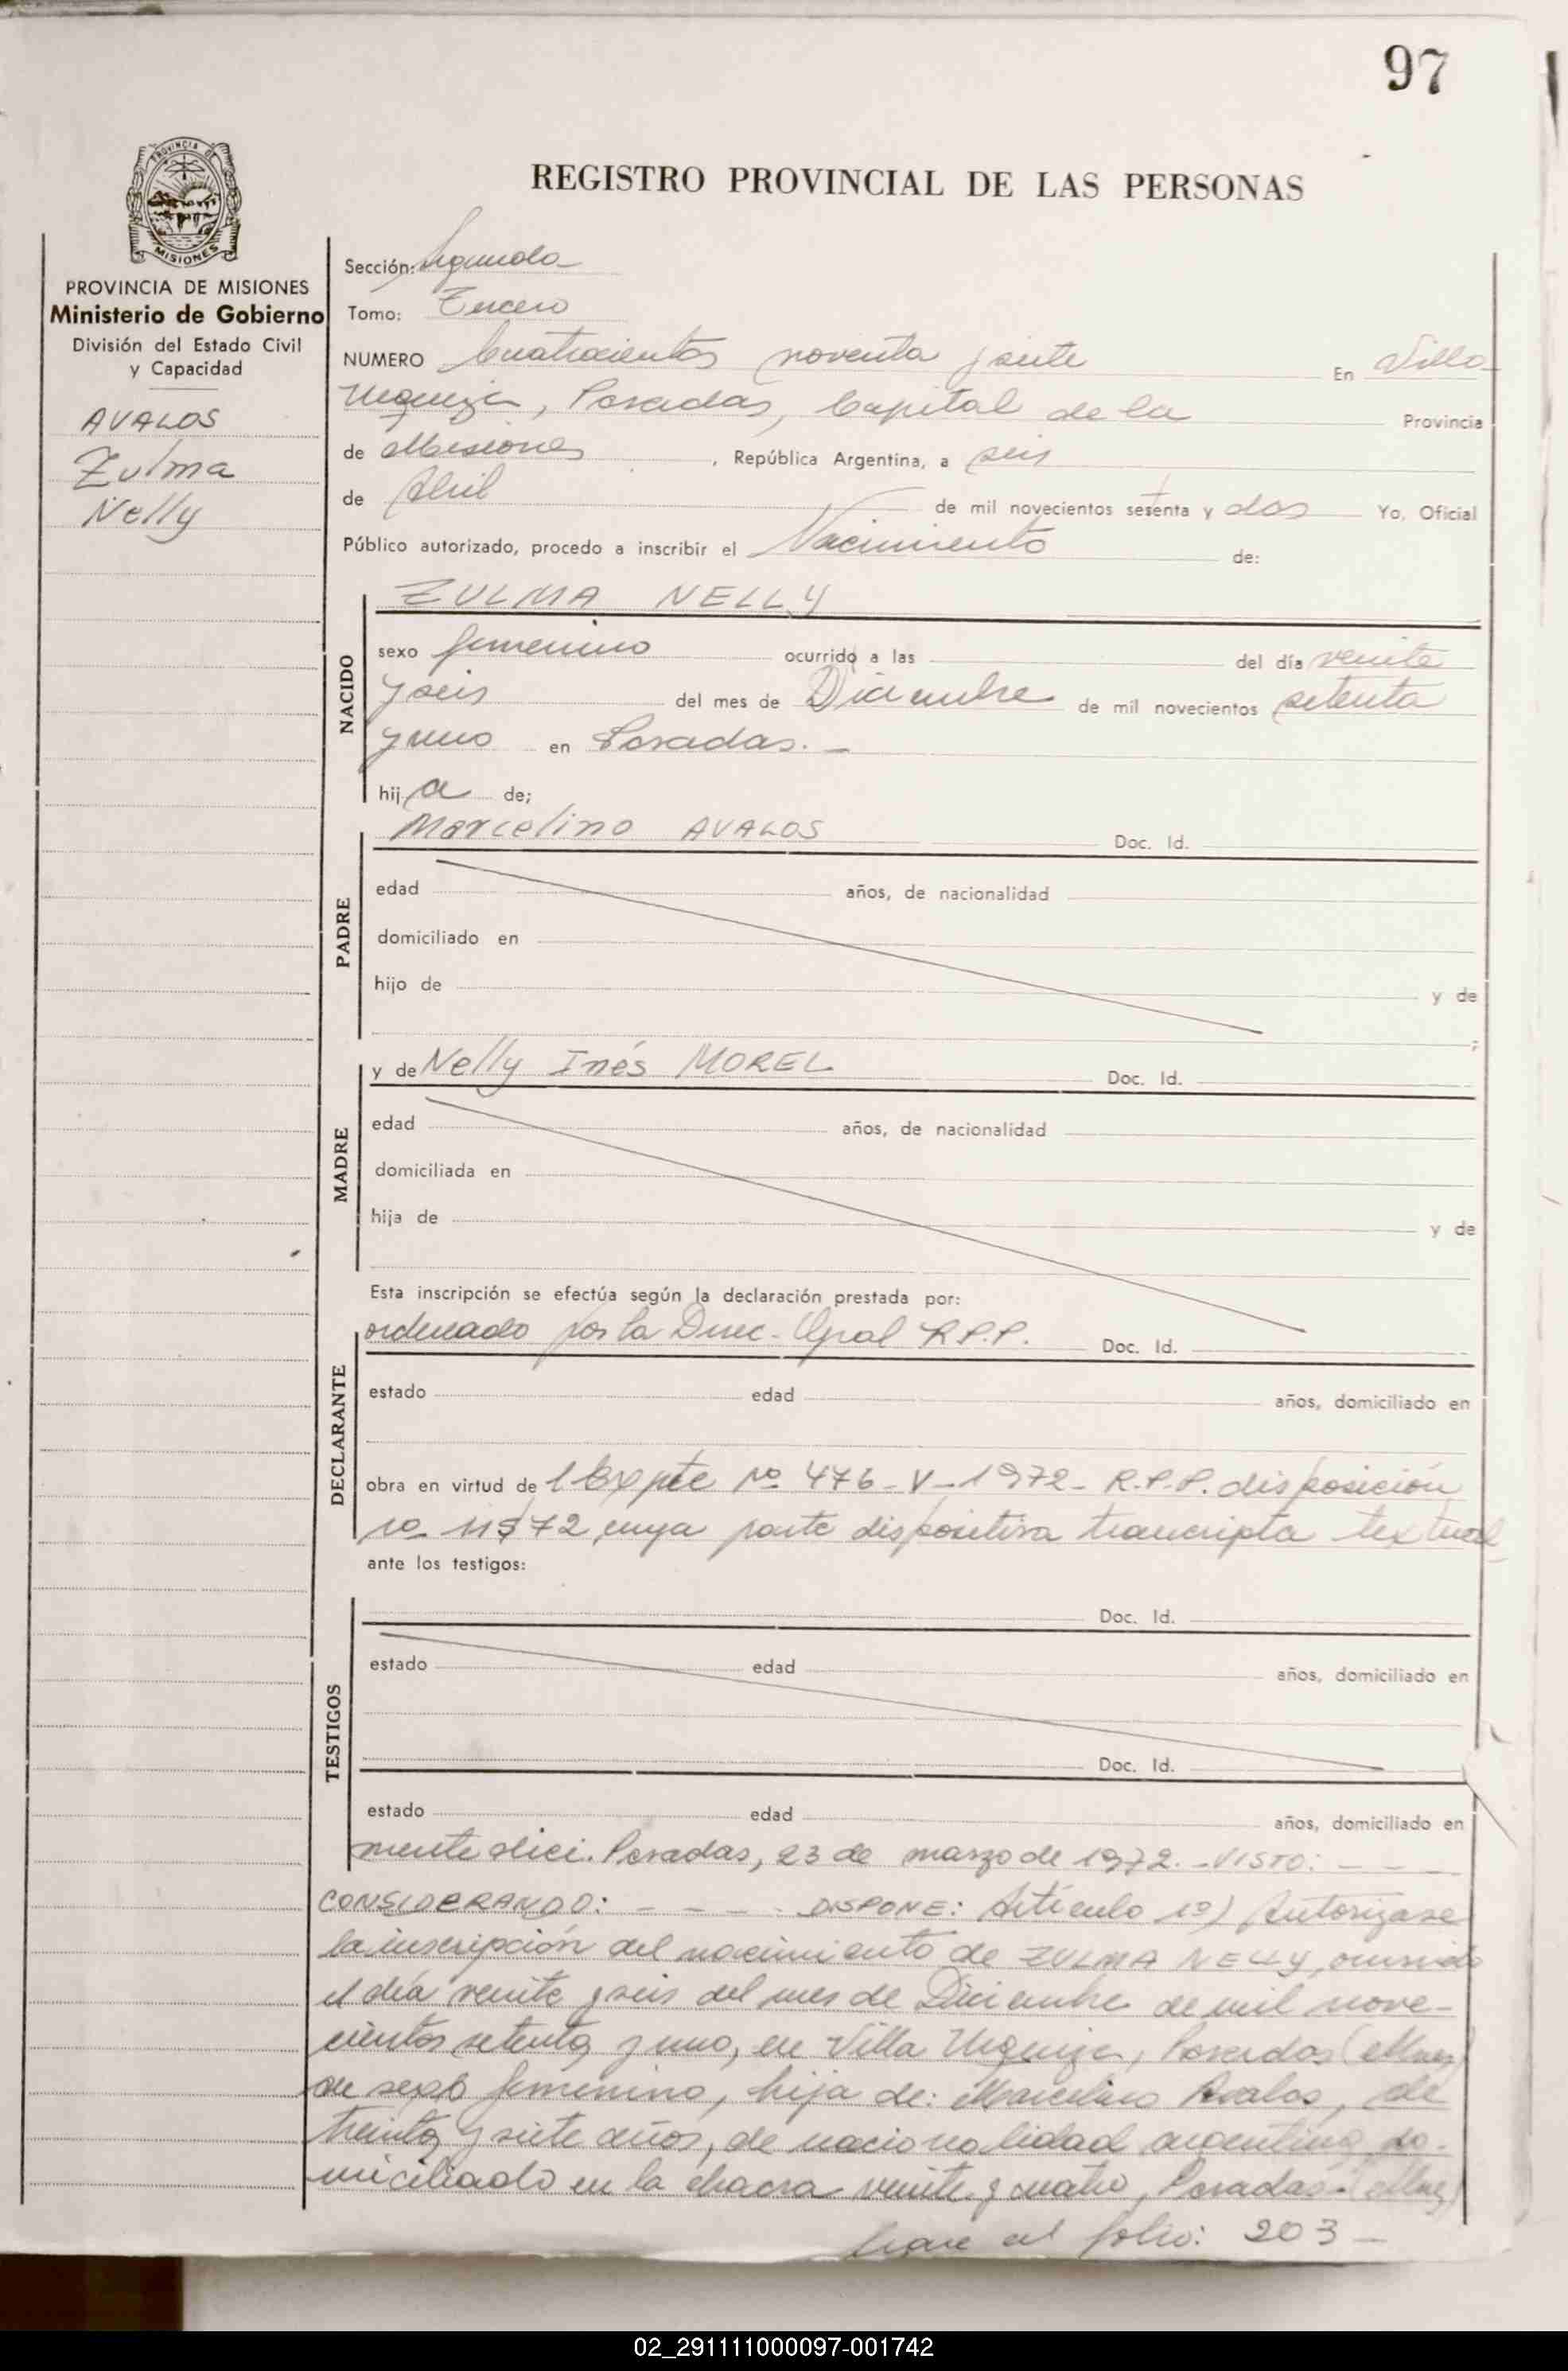 97
PROVINCIA DE
MISIONES
REGISTRO PROVINCIAL DE LAS PERSONAS
PROVINCIA DE MISIONES
Ministerio de Gobierno
División del Estado Civil
y Capacidad
AVALOS
Zulma
Nelly
Sección: Segunda
Tomo: Tercero
NUMERO Cuatrocientos noventa y siete En Villa
Urquiza, Posadas, Capital de la Provincia
de Misiones, República Argentina, a seis
de Abril de mil novecientos setenta y dos Yo, Oficial
Público autorizado, procedo a inscribir el Nacimiento de:
NACIDO
ZULMA NELLY
sexo femenino ocurrido a las del día veinte
y seis del mes de Diciembre de mil novecientos setenta
y uno en Posadas. -
hija de;
PADRE
Marcelino AVALOS Doc. Id.
edad años, de nacionalidad
domiciliado en
hijo de y de
;
MADRE
y de Nelly Inés MOREL Doc. Id.
edad años, de nacionalidad
domiciliada en
hija de y de
Esta inscripción se efectúa según la declaración prestada por:
DECLARANTE
ordenado por la Direc. Gral R.P.P. Doc. Id.
estado edad años, domiciliado en
obra en virtud de l Expte Nº 476-V-1972- R.P.P. disposición
cuya parte dispositiva transcripta textual-
ante los testigos:
TESTIGOS
Doc. Id.
estado edad años, domiciliado en
Doc. Id.
estado edad años, domiciliado en
mente dice: Posadas, 23 de marzo de 1972. - VISTO: - - -
CONSIDERANDO: - - - - DISPONE: Artículo 1º) Autorízase
la inscripción del nacimiento de ZULMA NELLY, ocurrido
el día veinte y seis del mes de Diciembre de mil nove-
cientos setenta y uno, en Villa Urquiza, Posadas (Mnes)
de sexo femenino, hija de: Marcelino Avalos, de
treinta y siete años, de nacionalidad argentina, do-
miciliado en la chacra veinte y cuatro, Posadas - (Mnes)
Sigue al folio: 203 -
02_291111000097-001742